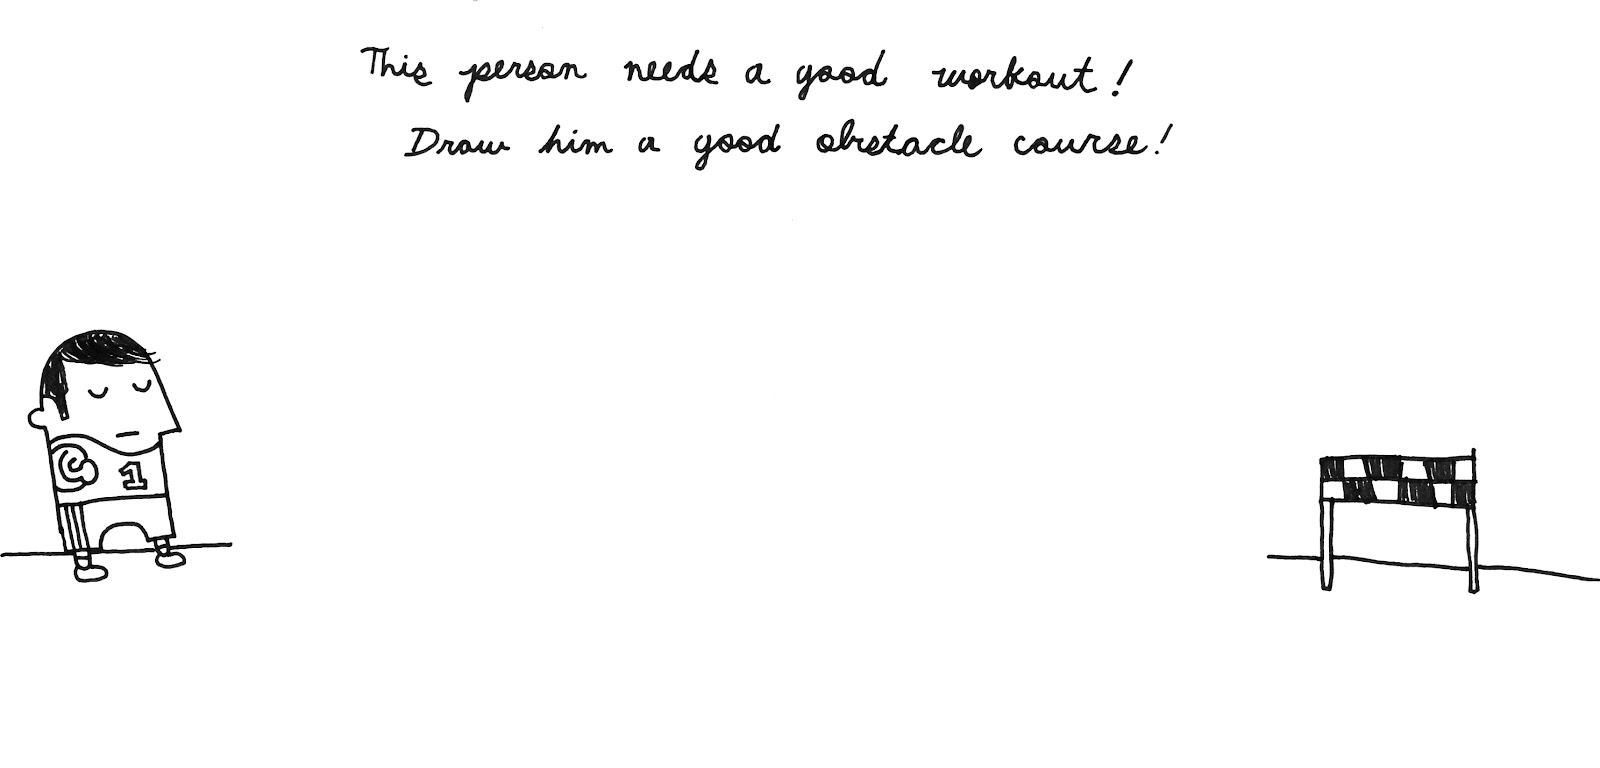 This person needs a good workout!
Draw him a good obstacle course!
1